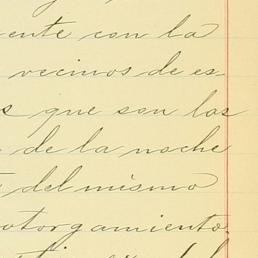 ente con la
vecinos de es-
s que son las
de la noche
del mismo
otorgamiento.